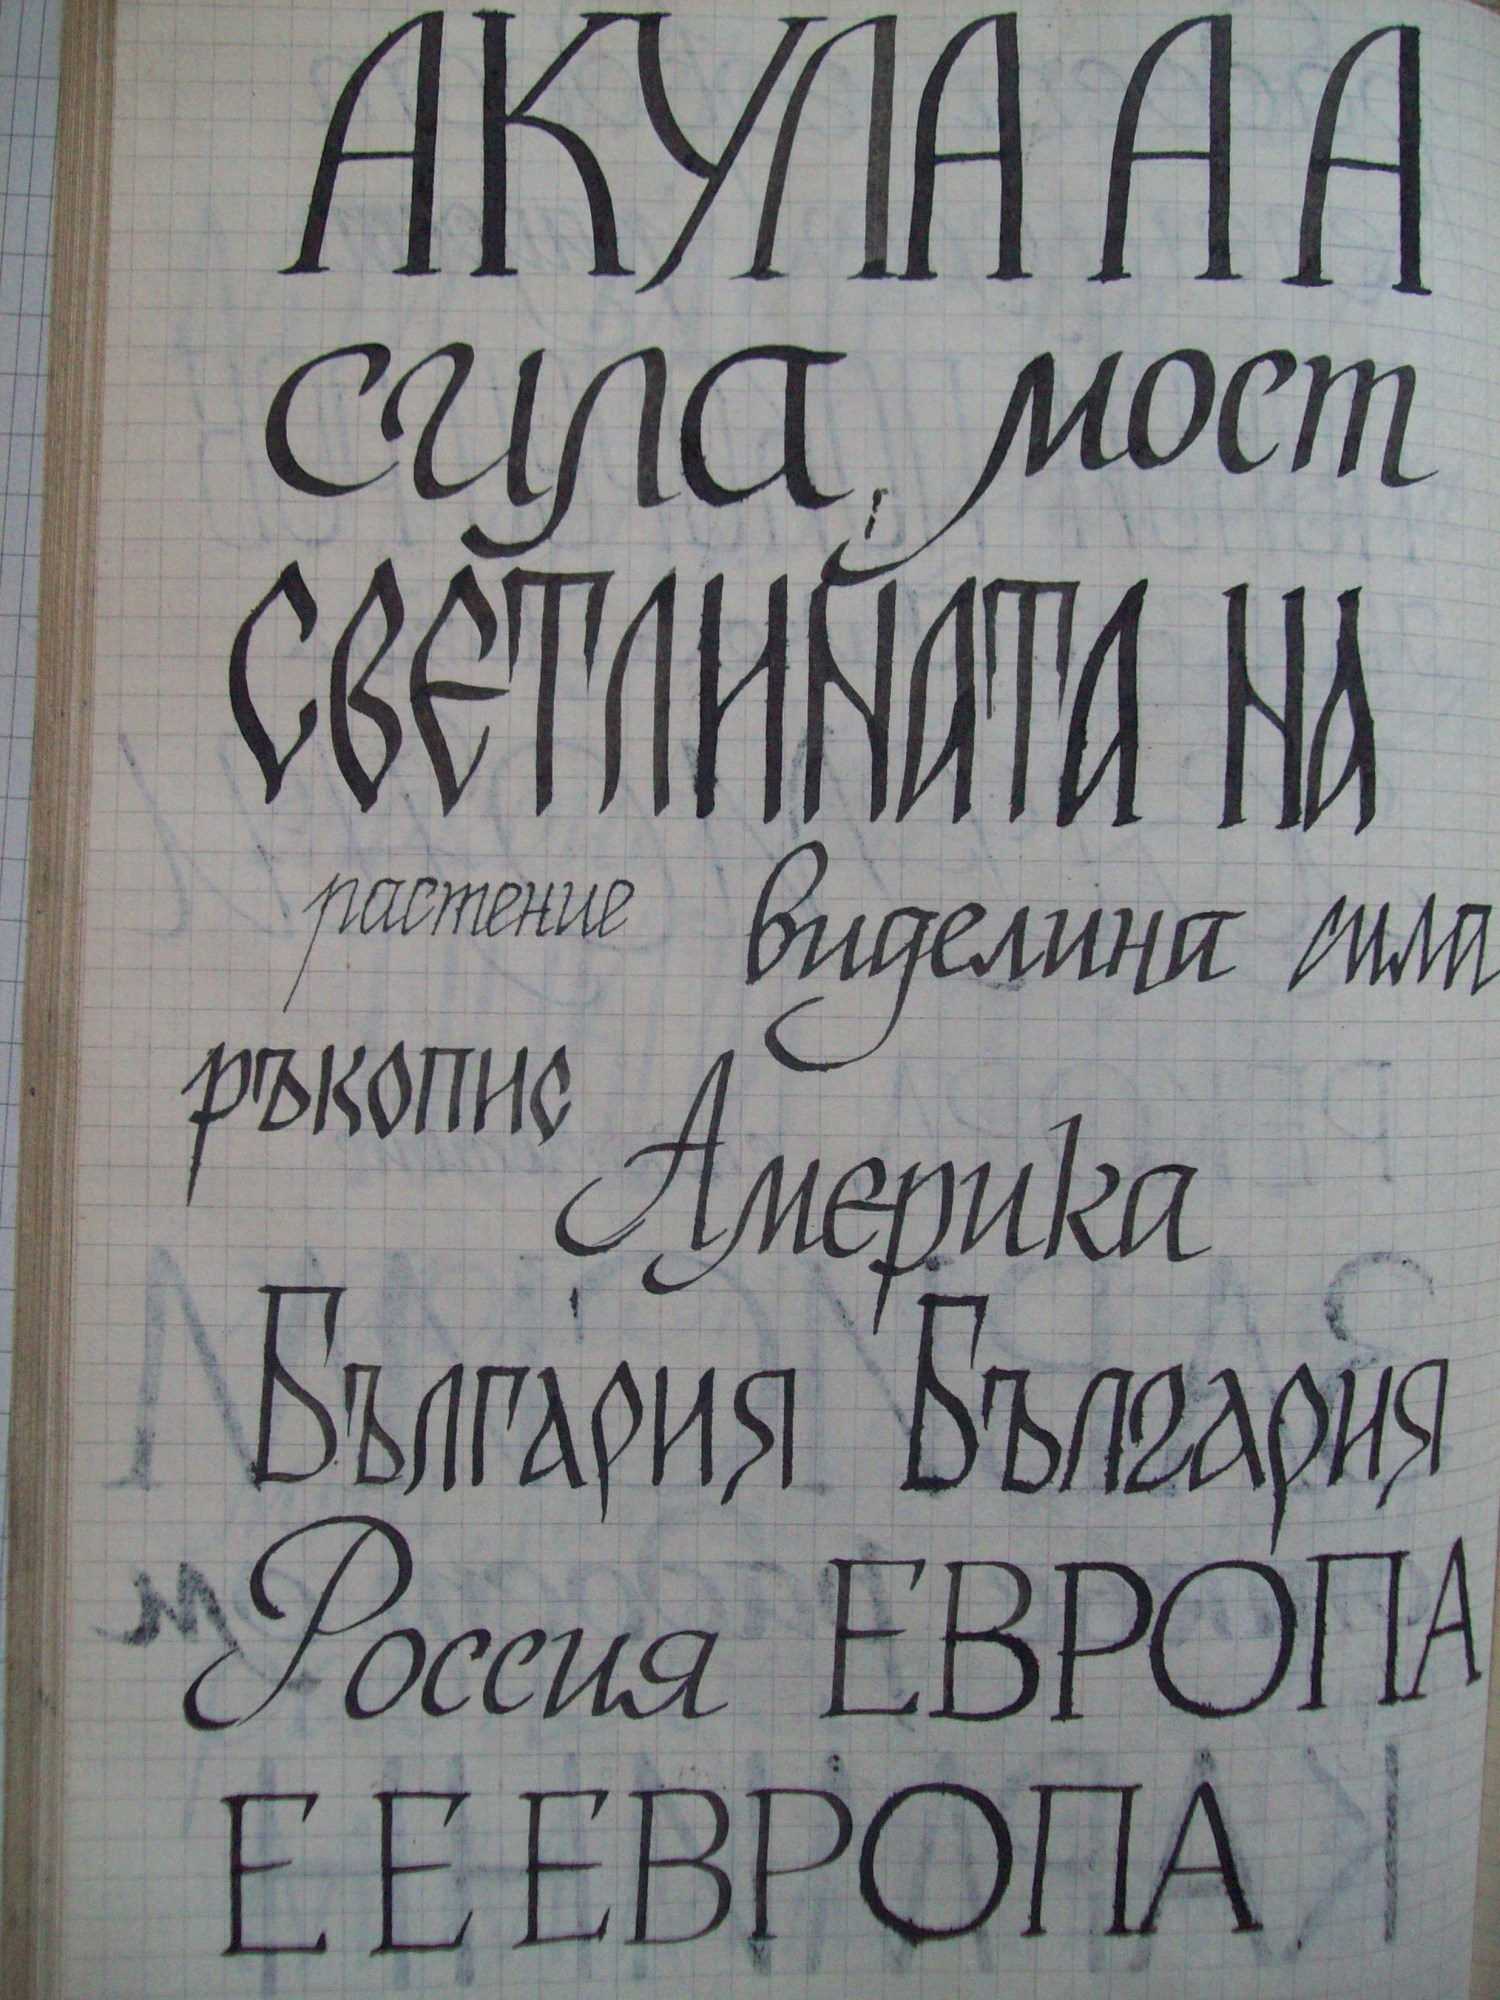 АКУЛА А А
сила, мост
СВЕТЛИНАТА НА
растение виделина сила
ръкопис
Америка
България България
Россия ЕВРОПА
Е Е ЕВРОПА